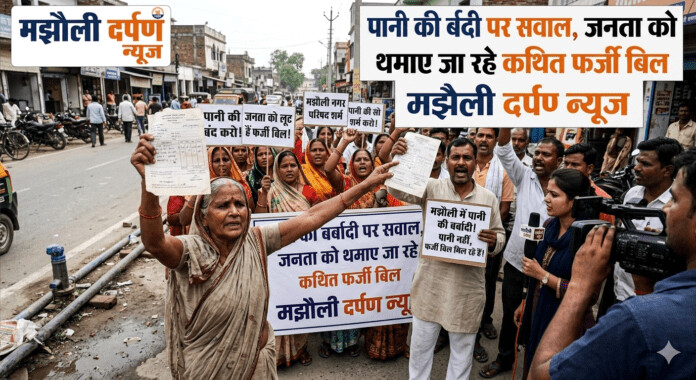 मझौली दर्पण
न्यूज
पानी की र्बदी पर सवाल, जनता को
थमाए जा रहे कथित फर्जी बिल
मझौली दर्पण न्यूज
पानी की
बंद करो!
जनता को लूट
हैं फर्जी बिल!
मझौली नगर
परिषद शर्म
पानी की सो
शर्म करो!
की बर्बादी पर सवाल,
जनता को थमाए जा रहे
कथित फर्जी बिल
मझौली दर्पण न्यूज
मझौली में पानी
की बर्बादी!
पानी नहीं,
फर्जी बिल बिल रहे हैं!